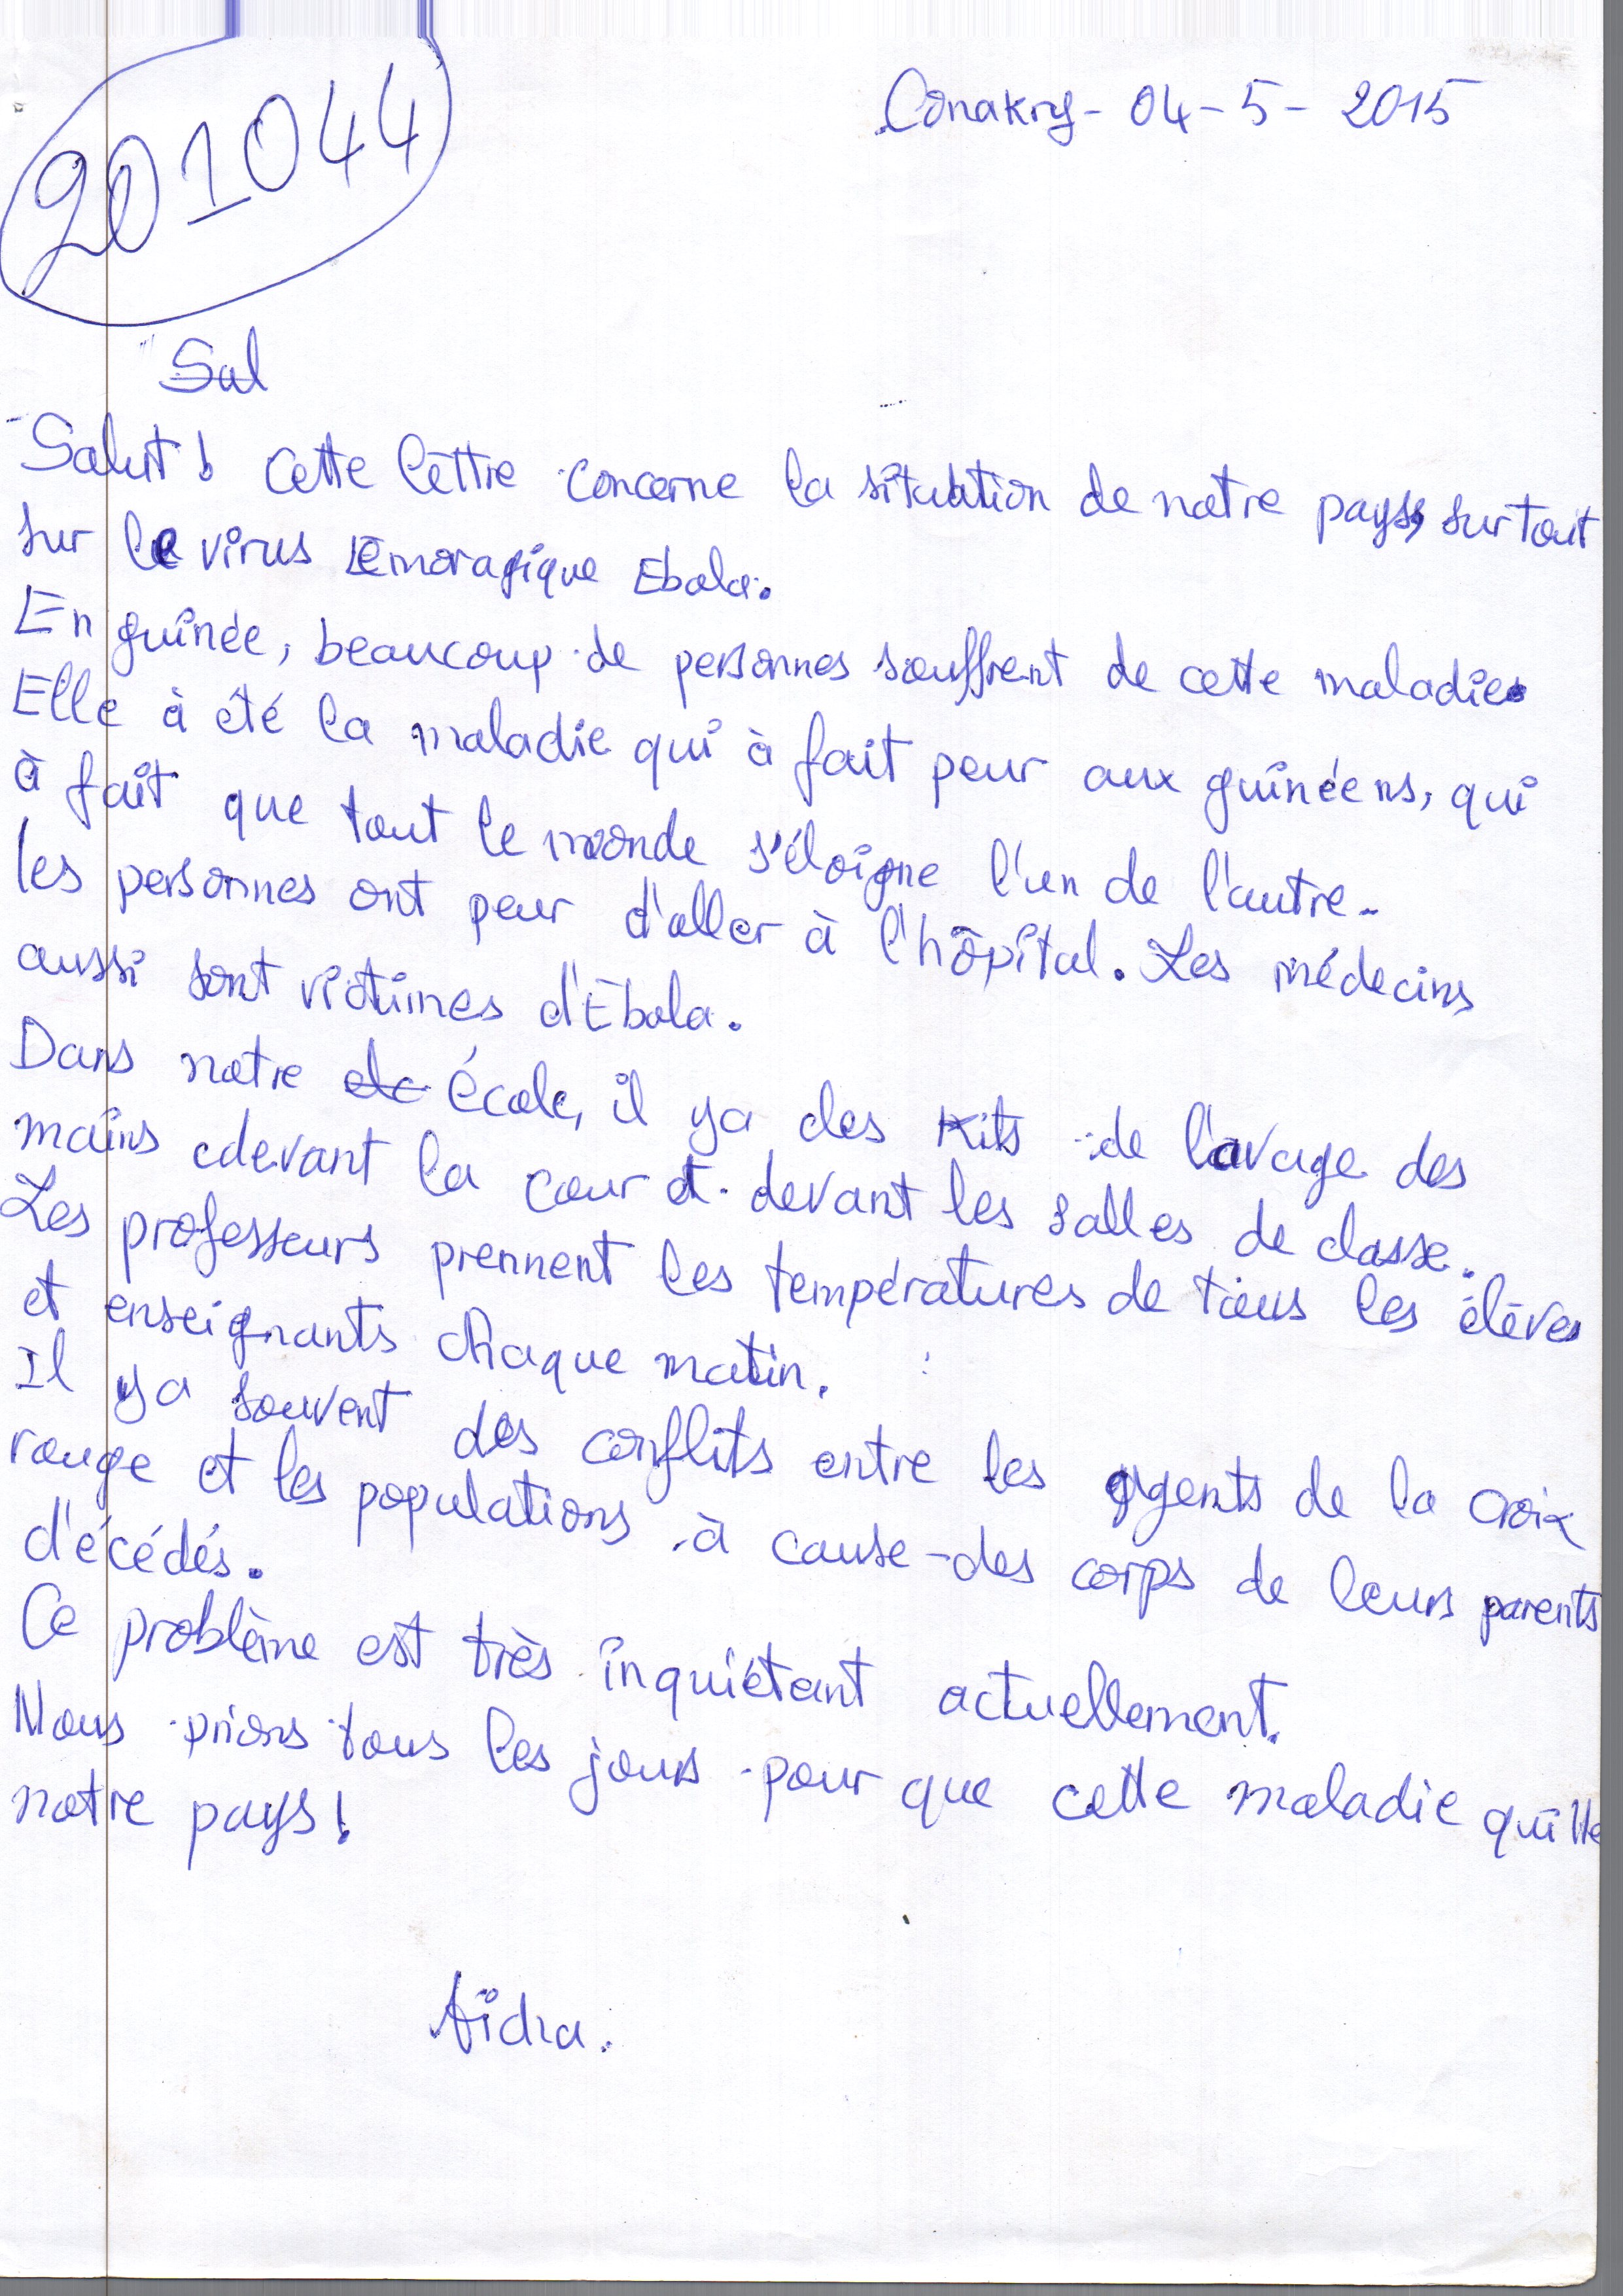 Conakry - 04 - 5 - 2015
201044
Sal
Salut! cette lettre concerne la situation de notre pays, surtout
sur le virus Lémoragique Ebola.
En guinée, beaucoup de personnes souffrent de cette maladie.
Elle à été la maladie qui à fait peur aux guinéens, qui
à fait que tout le monde s'éloigne l'un de l'autre.
les personnes ont peur d'aller à l'hôpital. Les médecins
aussi sont victimes d'Ebola.
Dans notre école, il ya des Kits de lavage des
mains devant la cour et devant les salles de classe.
Les professeurs prennent les températures de tous les élèves
et enseignants chaque matin.
Il ya souvent des conflits entre les agents de la croix
rouge et les populations à cause des corps de leurs parents
d'écédés.
Ce problème est très inquiétant actuellement.
Nous prions tous les jours pour que cette maladie quitte
notre pays!